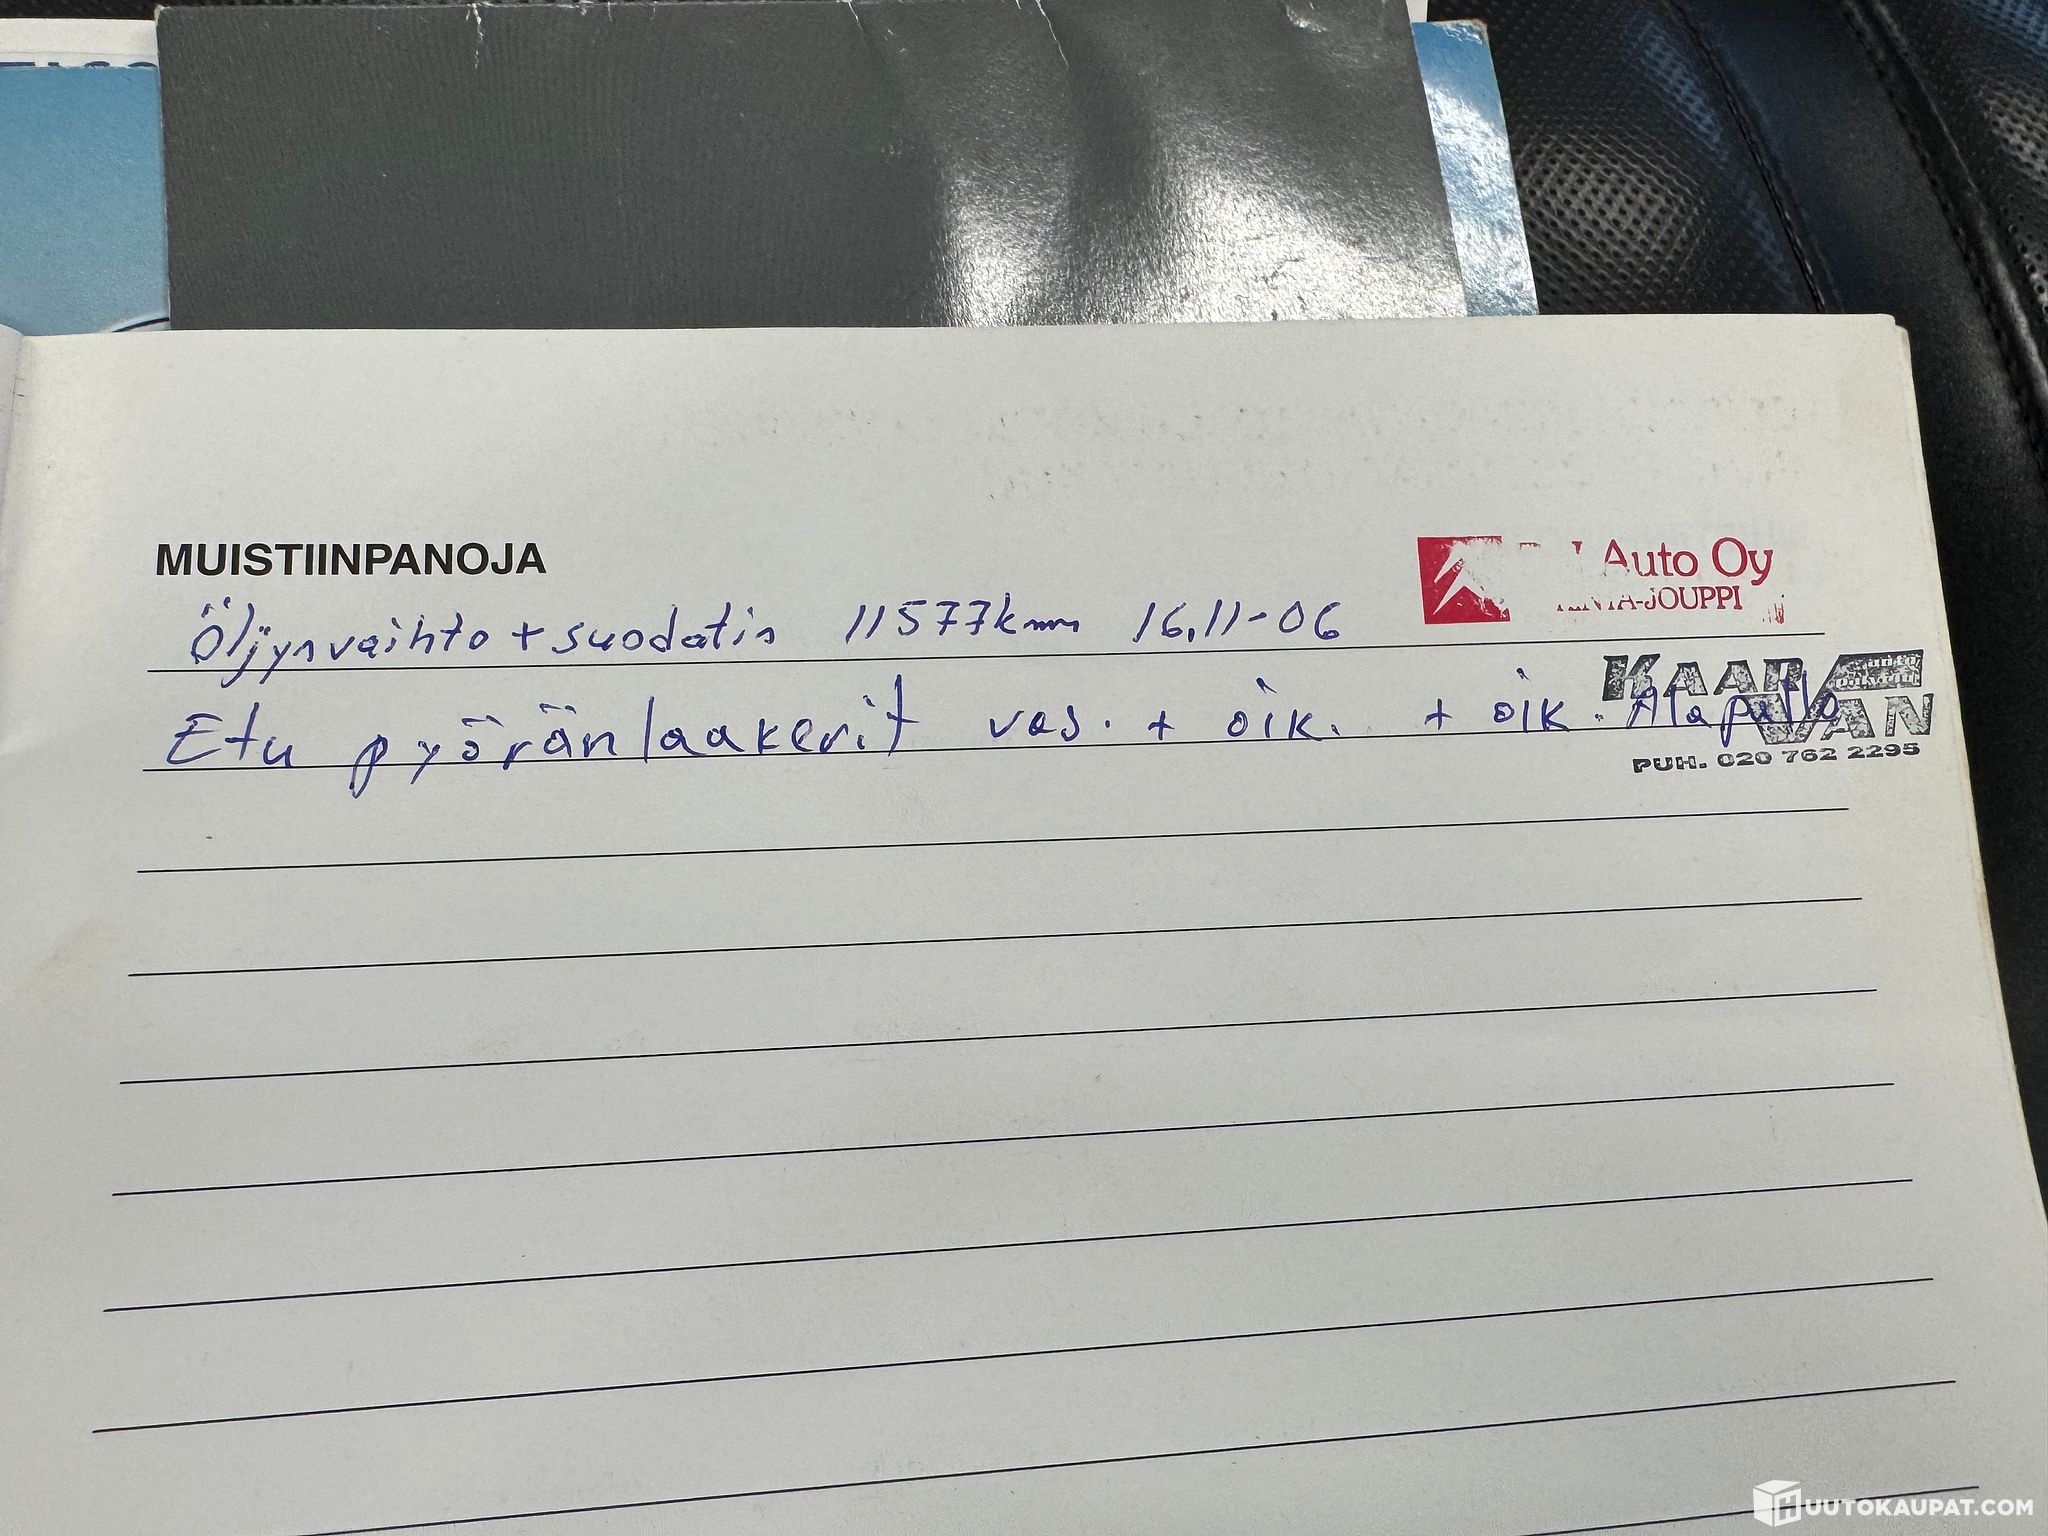 MUISTIINPANOJA
Auto Oy
-JOUPPI
Öljynvaihto + suodatin 11577km 16.11-06
KAARA
VAN
Etu pyöränlaakerit vas. + oik. + oik. Alapallo
PUH. 020 762 2295
HUUTOKAUPAT.COM